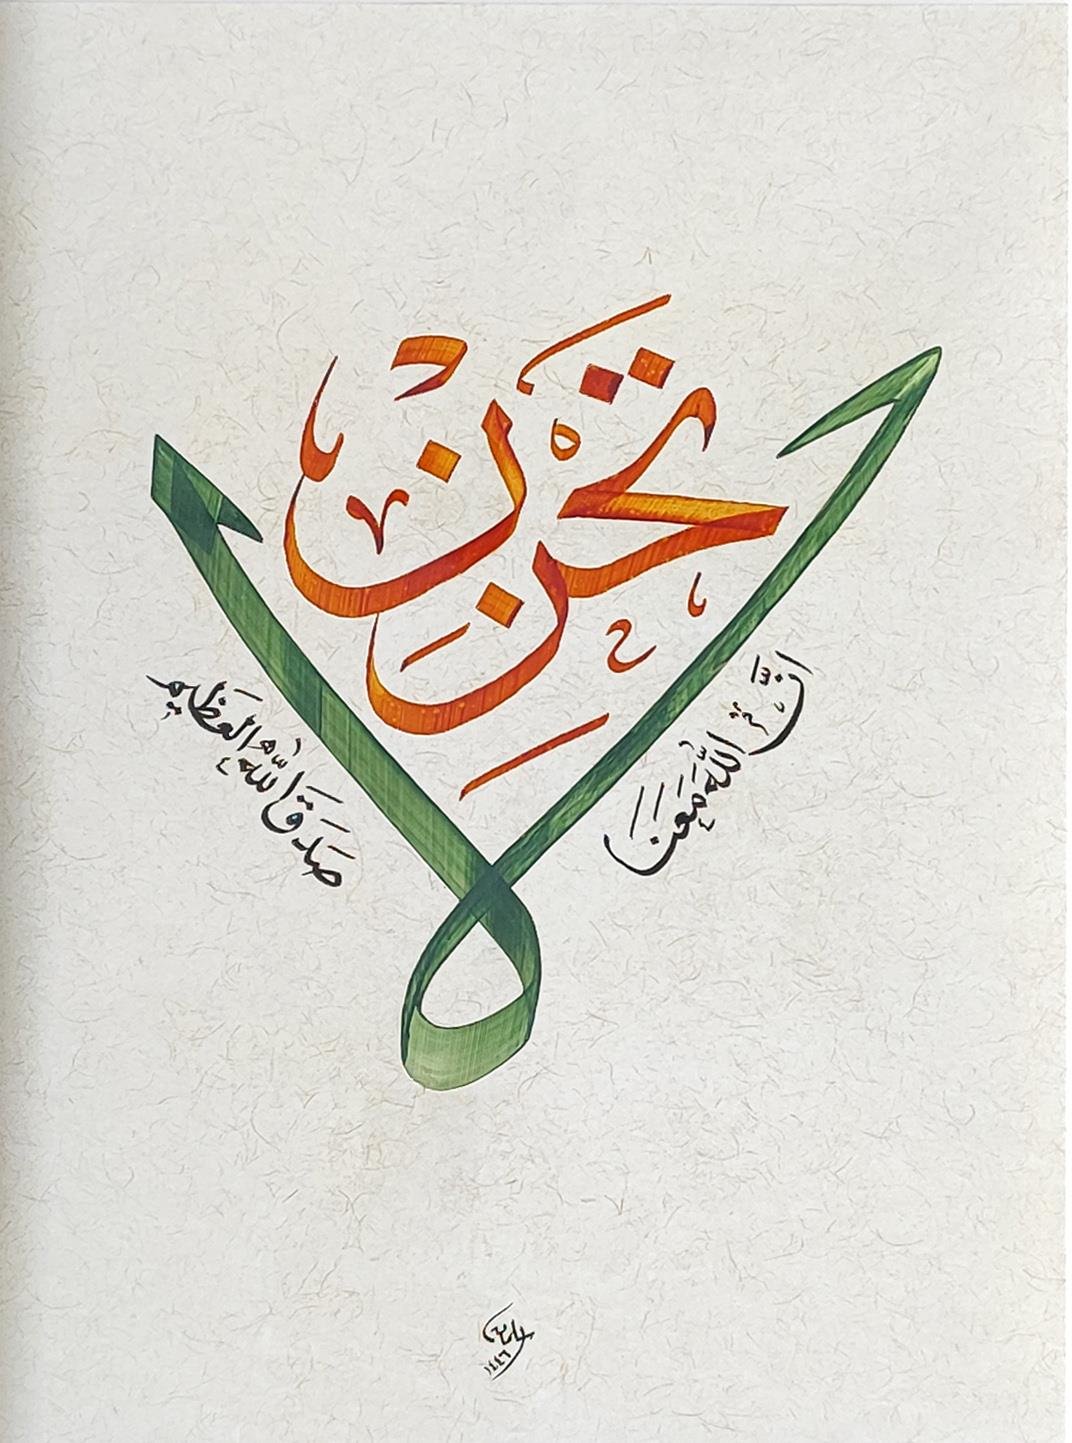 لا
تَحْزَنْ
اِنَّ اللّٰهَ مَعَنَا
صَدَقَ اللّٰهُ الْعَظِيم
١٤٤٦